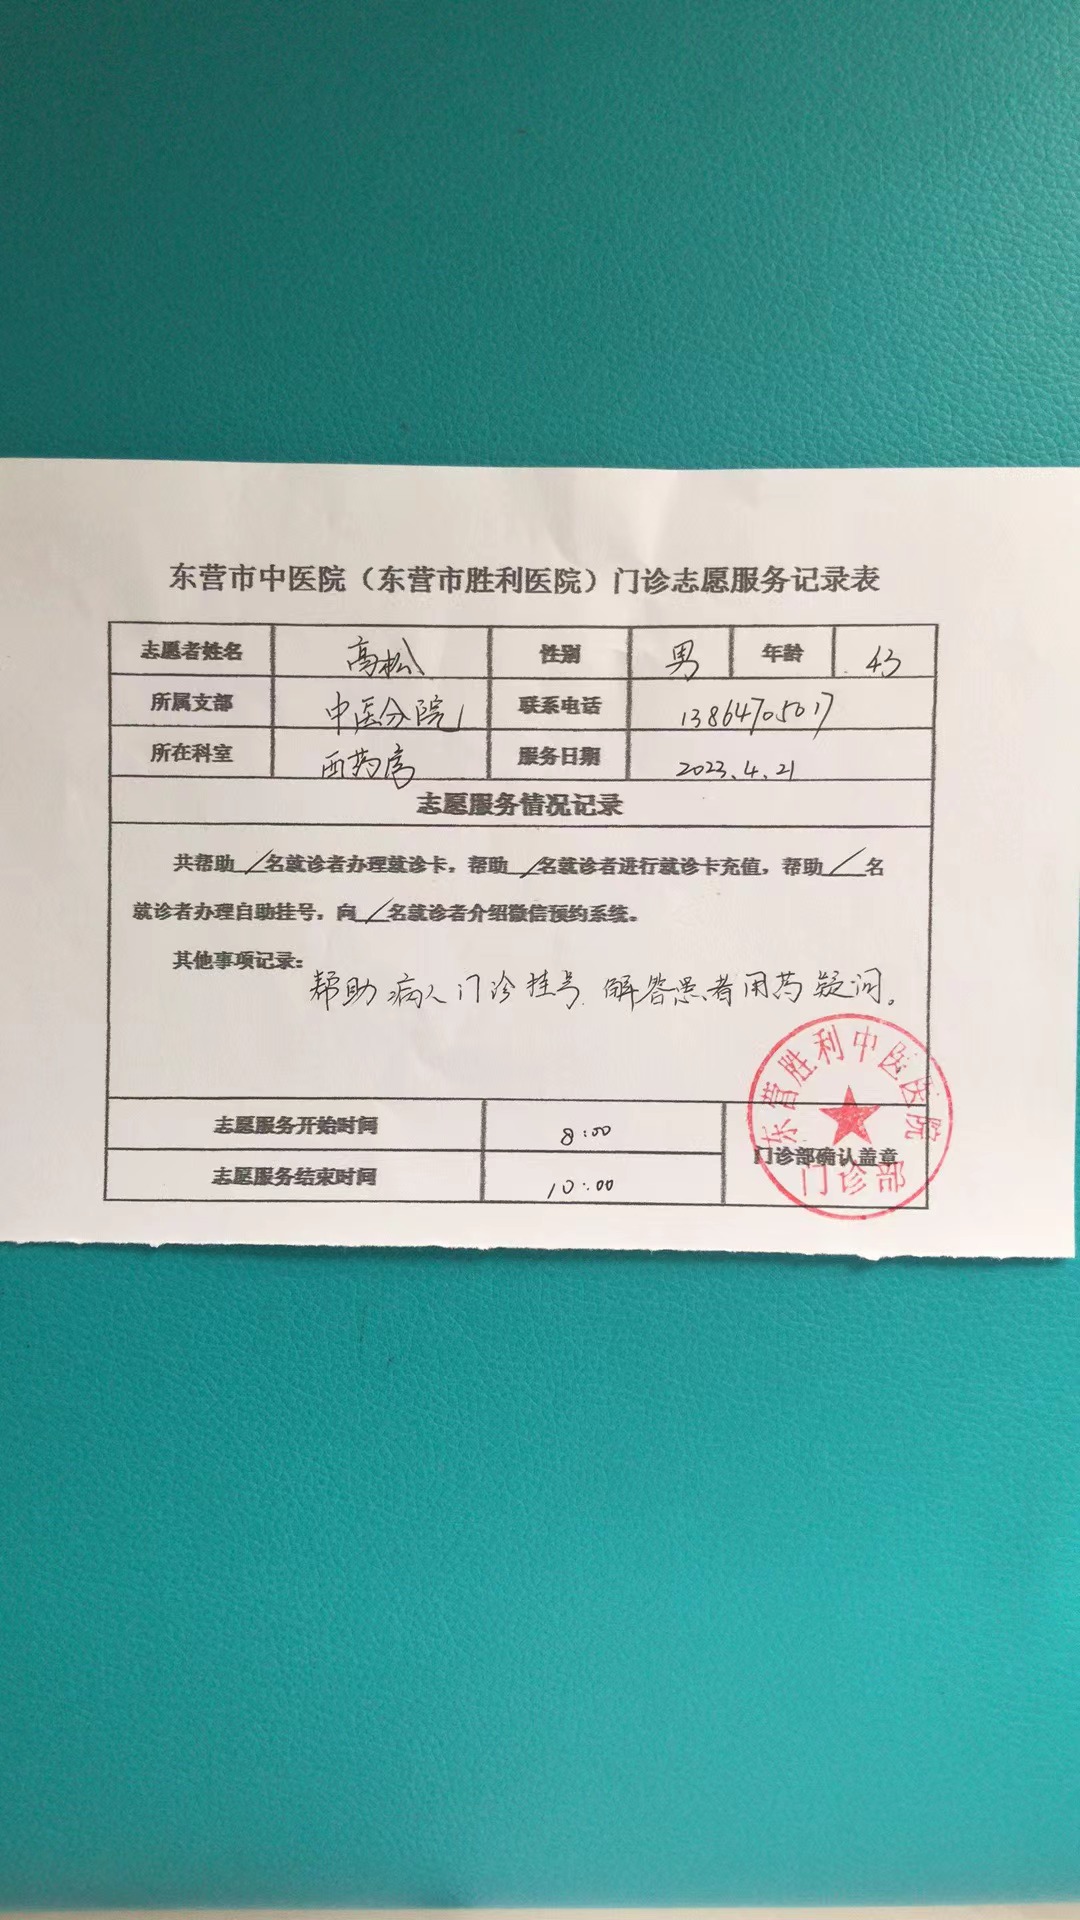 东营市中医院（东营市胜利医院）门诊志愿服务记录表
志愿者姓名 高松 性别 男 年龄 43
所属支部 中医分院1 联系电话 13864705017
所在科室 西药房 服务日期 2023.4.21
志愿服务情况记录
共帮助 / 名就诊者办理就诊卡，帮助 / 名就诊者进行就诊卡充值，帮助 / 名
就诊者办理自助挂号，向 / 名就诊者介绍微信预约系统。
其他事项记录：
帮助病人门诊挂号.解答患者用药疑问。
志愿服务开始时间 8:00
志愿服务结束时间 10:00
门诊部确认盖章
东营胜利中医医院
门诊部